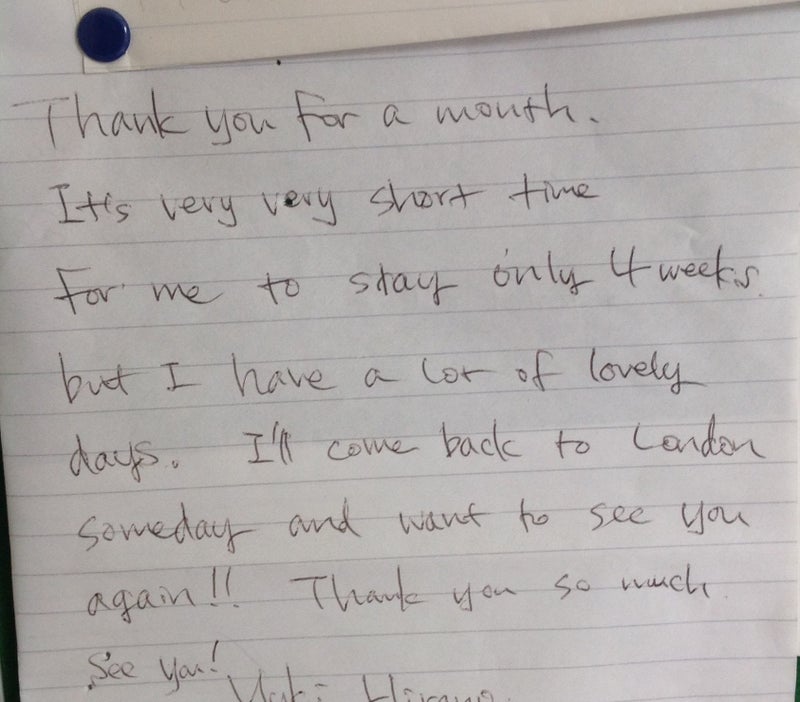 Thank you for a month.
It's very very short time
for me to stay only 4 weeks.
but I have a lot of lovely
days. I'll come back to London
someday and want to see you
again!! Thank you so much.
See you!